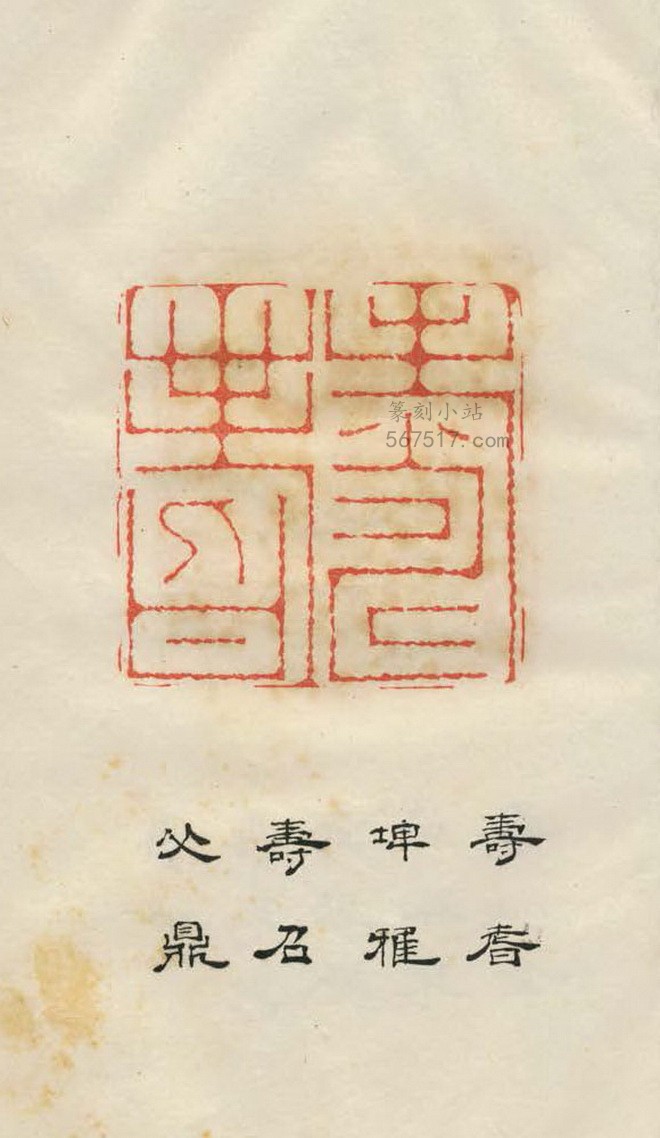 篆刻小站
567517.com
壽耆
埤雅
壽召
父鼎